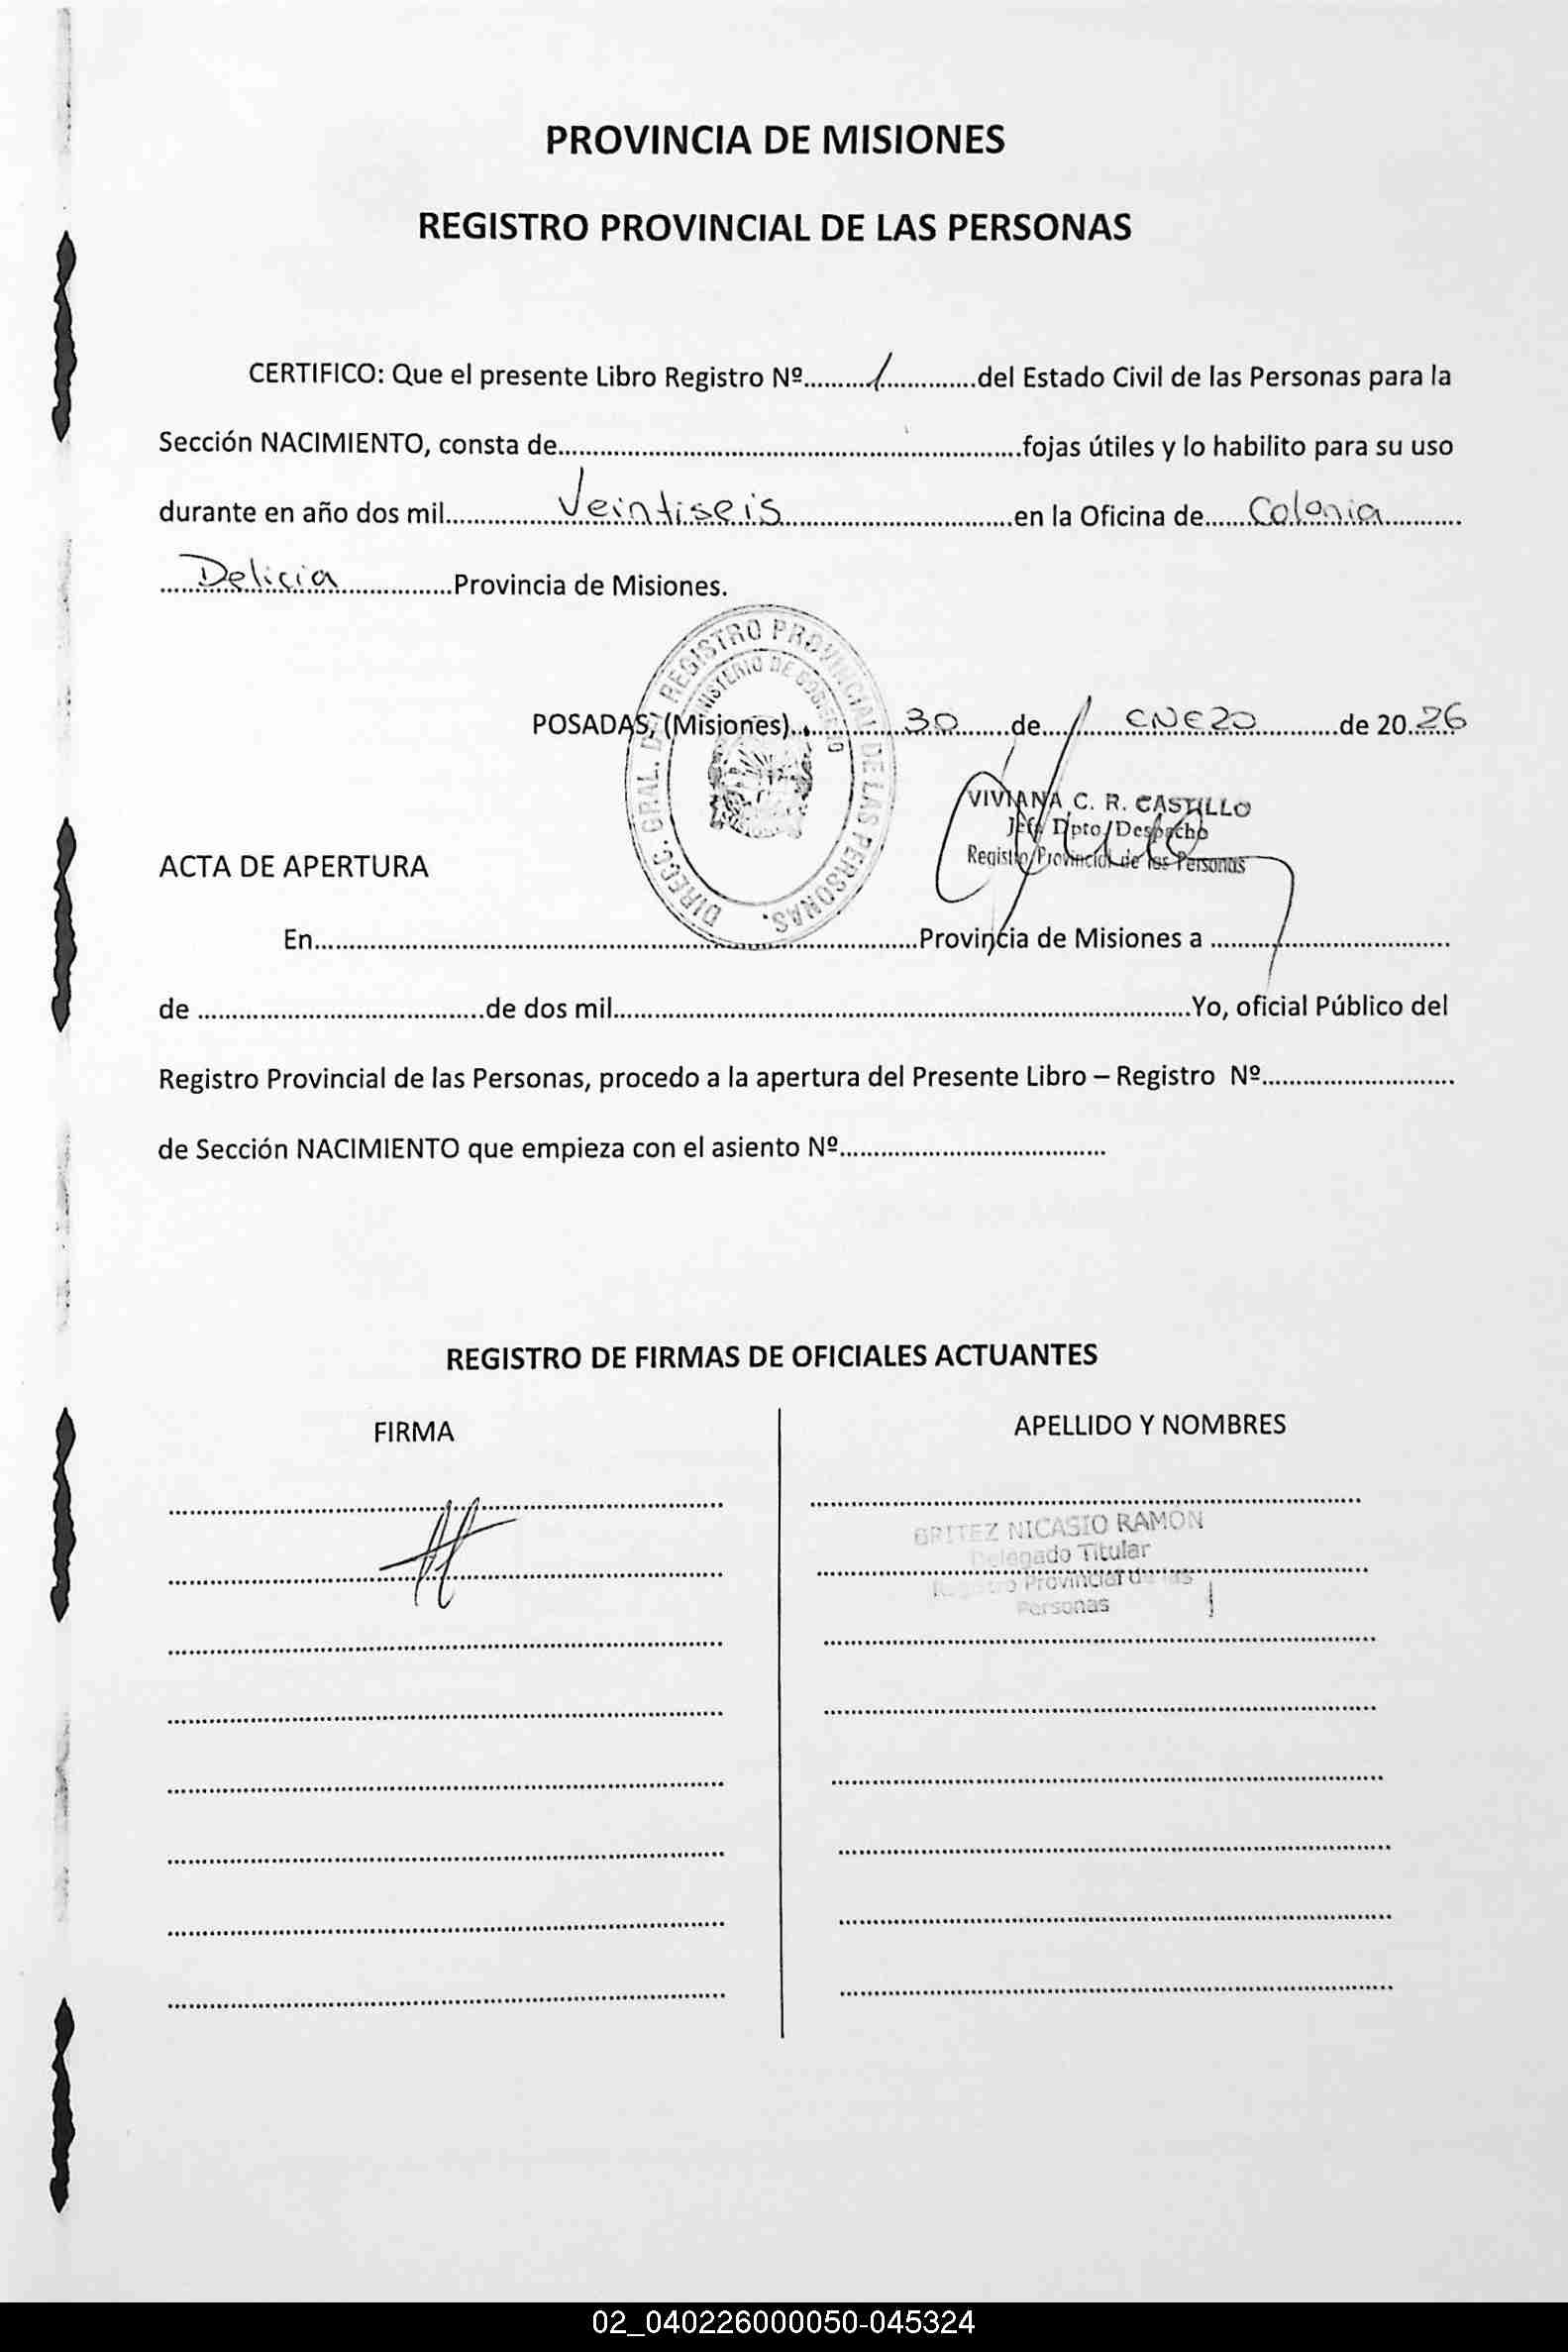 PROVINCIA DE MISIONES
REGISTRO PROVINCIAL DE LAS PERSONAS
CERTIFICO: Que el presente Libro Registro Nº.........1.............del Estado Civil de las Personas para la
Sección NACIMIENTO, consta de....................................................................fojas útiles y lo habilito para su uso
durante en año dos mil................Veintiseis..................................en la Oficina de.......Colonia...........
.....Delicia................Provincia de Misiones.
DIRECC. GRAL. DEL REGISTRO PROVINCIAL DE LAS PERSONAS.
MINISTERIO DE GOBIERNO
POSADAS, (Misiones)................30........de............ENERO............de 20..26
VIVIANA C. R. CASTILLO
Jefe Dpto. Despacho
Registro Provincial de las Personas
ACTA DE APERTURA
En........................................................................................Provincia de Misiones a ...................................
de ..........................................de dos mil.....................................................................................Yo, oficial Público del
Registro Provincial de las Personas, procedo a la apertura del Presente Libro – Registro Nº............................
de Sección NACIMIENTO que empieza con el asiento Nº.......................................
REGISTRO DE FIRMAS DE OFICIALES ACTUANTES
FIRMA
APELLIDO Y NOMBRES
BRITEZ NICASIO RAMON
Delegado Titular
Registro Provincial de las
Personas
02_040226000050-045324